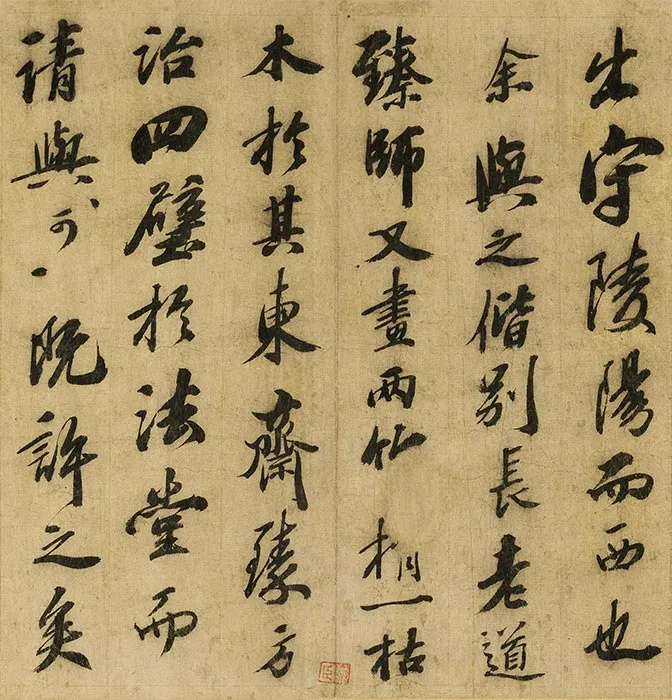 出守陵陽而西也
余與之偕別長老道
臻師又畫兩竹梢一枯
木於其東齋臻方
治四壁於法堂而
請與〻可〻既許之矣